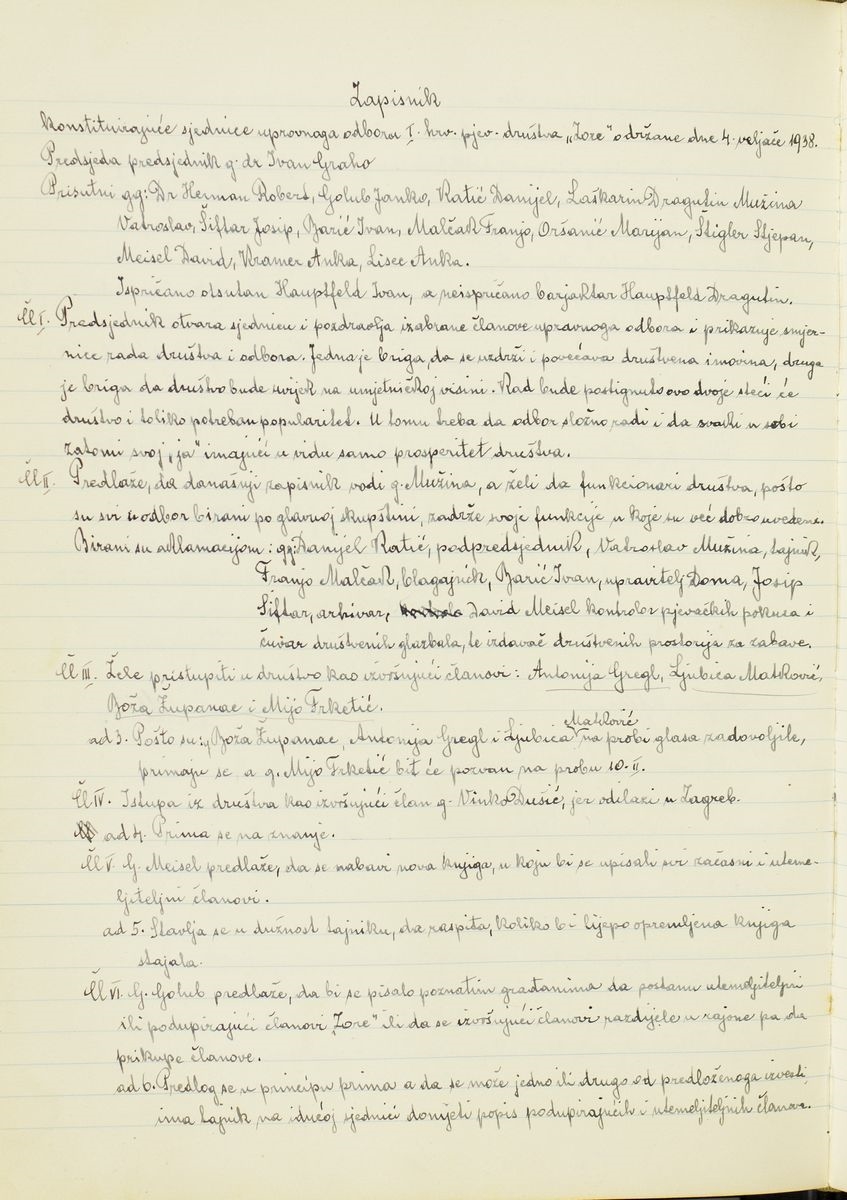 Zapisnik
konstituirajuće sjednice upravnoga odbora I. hrv. pjev. društva „Zore" održane dne 4. veljače 1938.
Predsjeda predsjednik g. dr Ivan Graho
Prisutni gg: Dr Herman Robert, Golub Janko, Katić Danijel, Laškarin Dragutin Mužina
Vatroslav, Šiftar Josip, Barić Ivan, Malčak Franjo, Oršanić Marijan, Štigler Stjepan,
Meisel David, Kramer Anka, Lisec Anka.
Ispričano otsutan Hauptfeld Ivan, a neispričano barjaktar Hauptfeld Dragutin.
Čl I. Predsjednik otvara sjednicu i pozdravlja izabrane članove upravnoga odbora i prikazuje smjer-
nice rada društva i odbora. Jedna je briga, da se uzdrži i povećava društvena imovina, druga
je briga da društvo bude uvijek na umjetničkoj visini. Kad bude postignuto ovo dvoje steći će
društvo i toliko potreban popularitet. U tomu treba da odbor složno radi i da svatki u sebi
zatomi svoj „ja" imajući u vidu samo prosperitet društva.
Čl II. Predlaže, da današnji zapisnik vodi g. Mužina, a želi da funkcionari društva, pošto
su svi u odbor birani po glavnoj skupštini, zadrže svoje funkcije u koje su već dobro uvedeni.
Birani su aklamacijom: gg: Danijel Katić, podpredsjednik, Vatroslav Mužina, tajnik,
Franjo Malčak, blagajnik, Barić Ivan, upravitelj Doma, Josip
Šiftar, arhivar, David Meisel kontrolor pjevačkih pokusa i
čuvar društvenih glazbala, te izdavač društvenih prostorija za zabave.
Čl III. Žele pristupiti u društvo kao izvršujući članovi: Antonija Gregl, Ljubica Matković,
Boža Županac i Mijo Frketić.
ad 3. Pošto su: Boža Županac, Antonija Gregl i Ljubica Matković na probi glasa zadovoljile,
primaju se a g. Mijo Frketić bit će pozvan na probu 10. II.
Čl IV. Istupa iz društva kao izvršujući član g. Vinko Dušić, jer odilazi u Zagreb.
ad 4. Prima se na znanje.
Čl V. G. Meisel predlaže, da se nabavi nova knjiga, u koju bi se upisali svi začasni i uteme-
ljiteljni članovi.
ad 5. Stavlja se u dužnost tajniku, da raspita, koliko bi lijepo opremljena knjiga
stajala.
Čl VI. G. Golub predlaže, da bi se pisalo poznatim građanima da postanu utemeljiteljni
ili podupirajući članovi „Zore" ili da se izvršujući članovi razdijele u rajone pa da
prikupe članove.
ad 6. Predlog se u principu prima a da se može jedno ili drugo od predloženoga izvesti,
ima tajnik na idućoj sjednici donijeti popis podupirajućih i utemeljiteljnih članova.